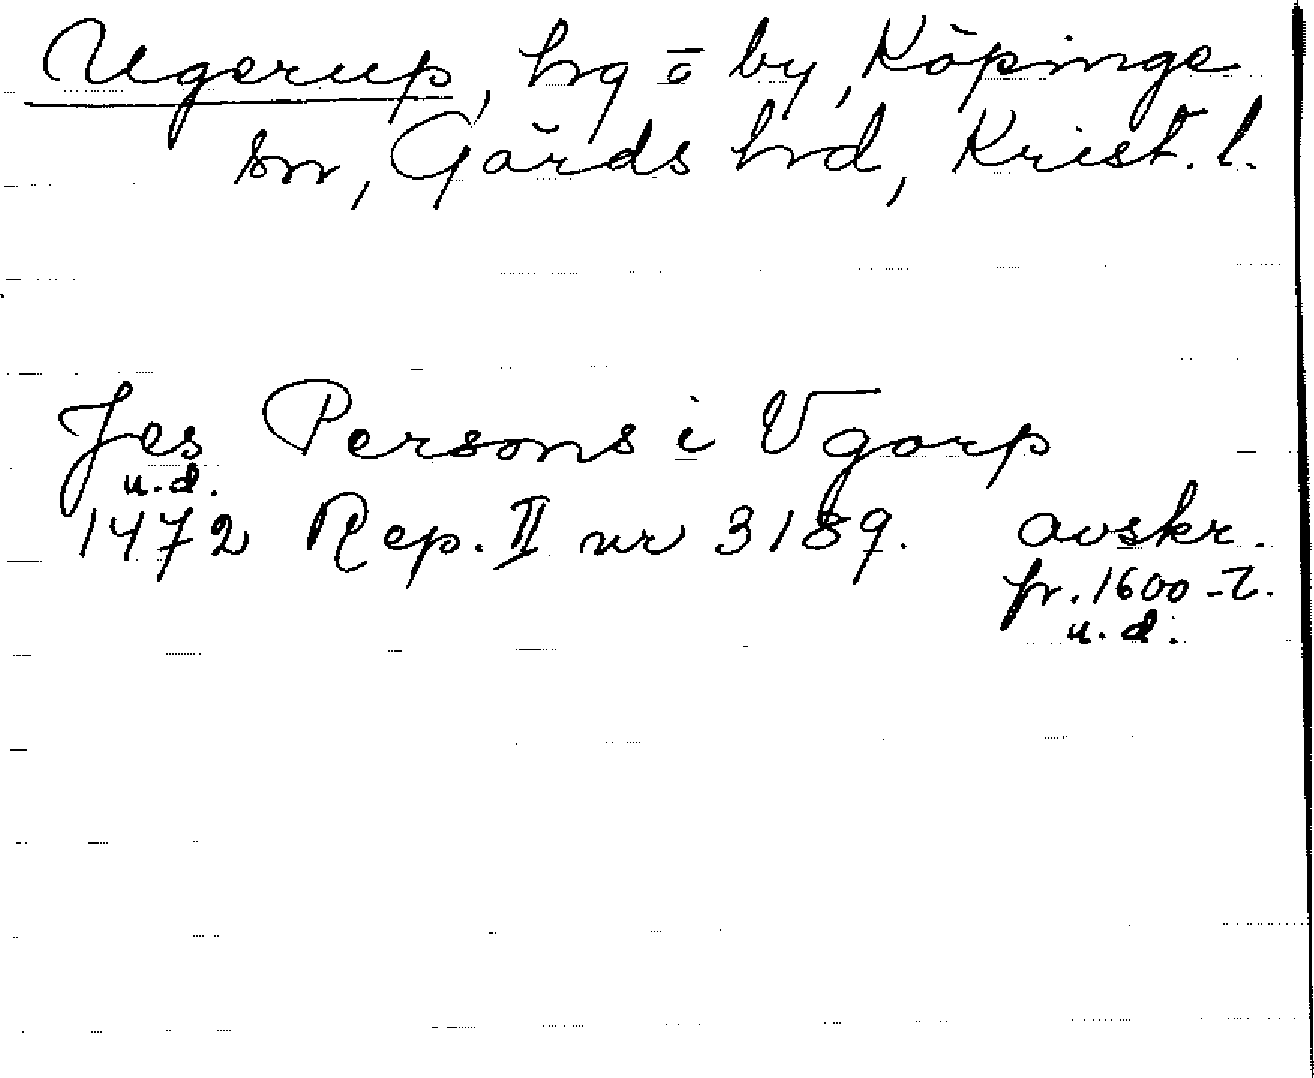 Ugerup, hrg o by, Köpinge
sn, Gärds hrd, Krist. l.
Jes Persons i Vgorp
u.d.
1472 Rep. II nr 3189. avskr.
fr. 1600-t.
u.d.